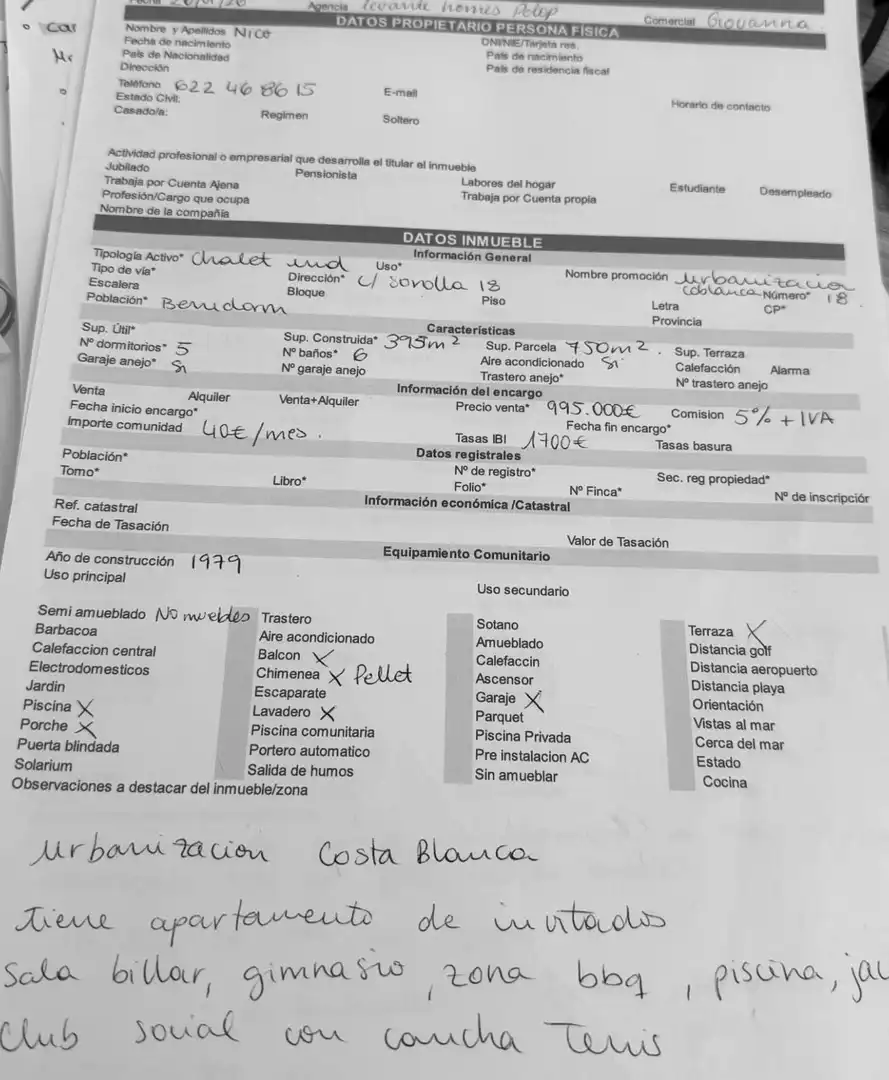 Agencia Levante homes Polop Comercial Giovanna
DATOS PROPIETARIO PERSONA FÍSICA
Nombre y Apellidos Nico
DNI/NIE/Tarjeta res.
Fecha de nacimiento
País de nacimiento
País de Nacionalidad
País de residencia fiscal
Dirección
Teléfono 622 46 86 15 E-mail Horario de contacto
Estado Civil:
Casado/a: Regimen Soltero
Actividad profesional o empresarial que desarrolla el titular el inmueble
Jubilado Pensionista Labores del hogar Estudiante Desempleado
Trabaja por Cuenta Ajena Trabaja por Cuenta propia
Profesión/Cargo que ocupa
Nombre de la compañía
DATOS INMUEBLE
Información General
Tipología Activo* Chalet ind Uso* Nombre promoción Urbanizacion
Tipo de vía* Dirección* C/ Sorolla 18 Cblanca Número* 18
Escalera Bloque Piso Letra CP*
Población* Benidorm Provincia
Características
Sup. Útil* Sup. Construida* 395m² Sup. Parcela 750m². Sup. Terraza
Nº dormitorios* 5 Nº baños* 6 Aire acondicionado Si Calefacción Alarma
Garaje anejo* Si Nº garaje anejo Trastero anejo* Nº trastero anejo
Información del encargo
Venta Alquiler Venta+Alquiler Precio venta* 995.000€ Comision 5% + IVA
Fecha inicio encargo* Fecha fin encargo*
Importe comunidad 40€/mes. Tasas IBI 1700€ Tasas basura
Datos registrales
Población* Nº de registro* Sec. reg propiedad*
Tomo* Libro* Folio* Nº Finca* Nº de inscripciór
Información económica /Catastral
Ref. catastral
Fecha de Tasación Valor de Tasación
Equipamiento Comunitario
Año de construcción 1979
Uso principal Uso secundario
Semi amueblado No muebles Trastero Sotano Terraza X
Barbacoa Aire acondicionado Amueblado Distancia golf
Calefaccion central Balcon X Calefaccin Distancia aeropuerto
Electrodomesticos Chimenea X Pellet Ascensor Distancia playa
Jardin Escaparate Garaje X Orientación
Piscina X Lavadero X Parquet Vistas al mar
Porche X Piscina comunitaria Piscina Privada Cerca del mar
Puerta blindada Portero automatico Pre instalacion AC Estado
Solarium Salida de humos Sin amueblar Cocina
Observaciones a destacar del inmueble/zona
Urbanizacion Costa Blanca
Tiene apartamento de invitados
Sala billar, gimnasio, zona bbq, piscina, jac
Club social con cancha Tenis